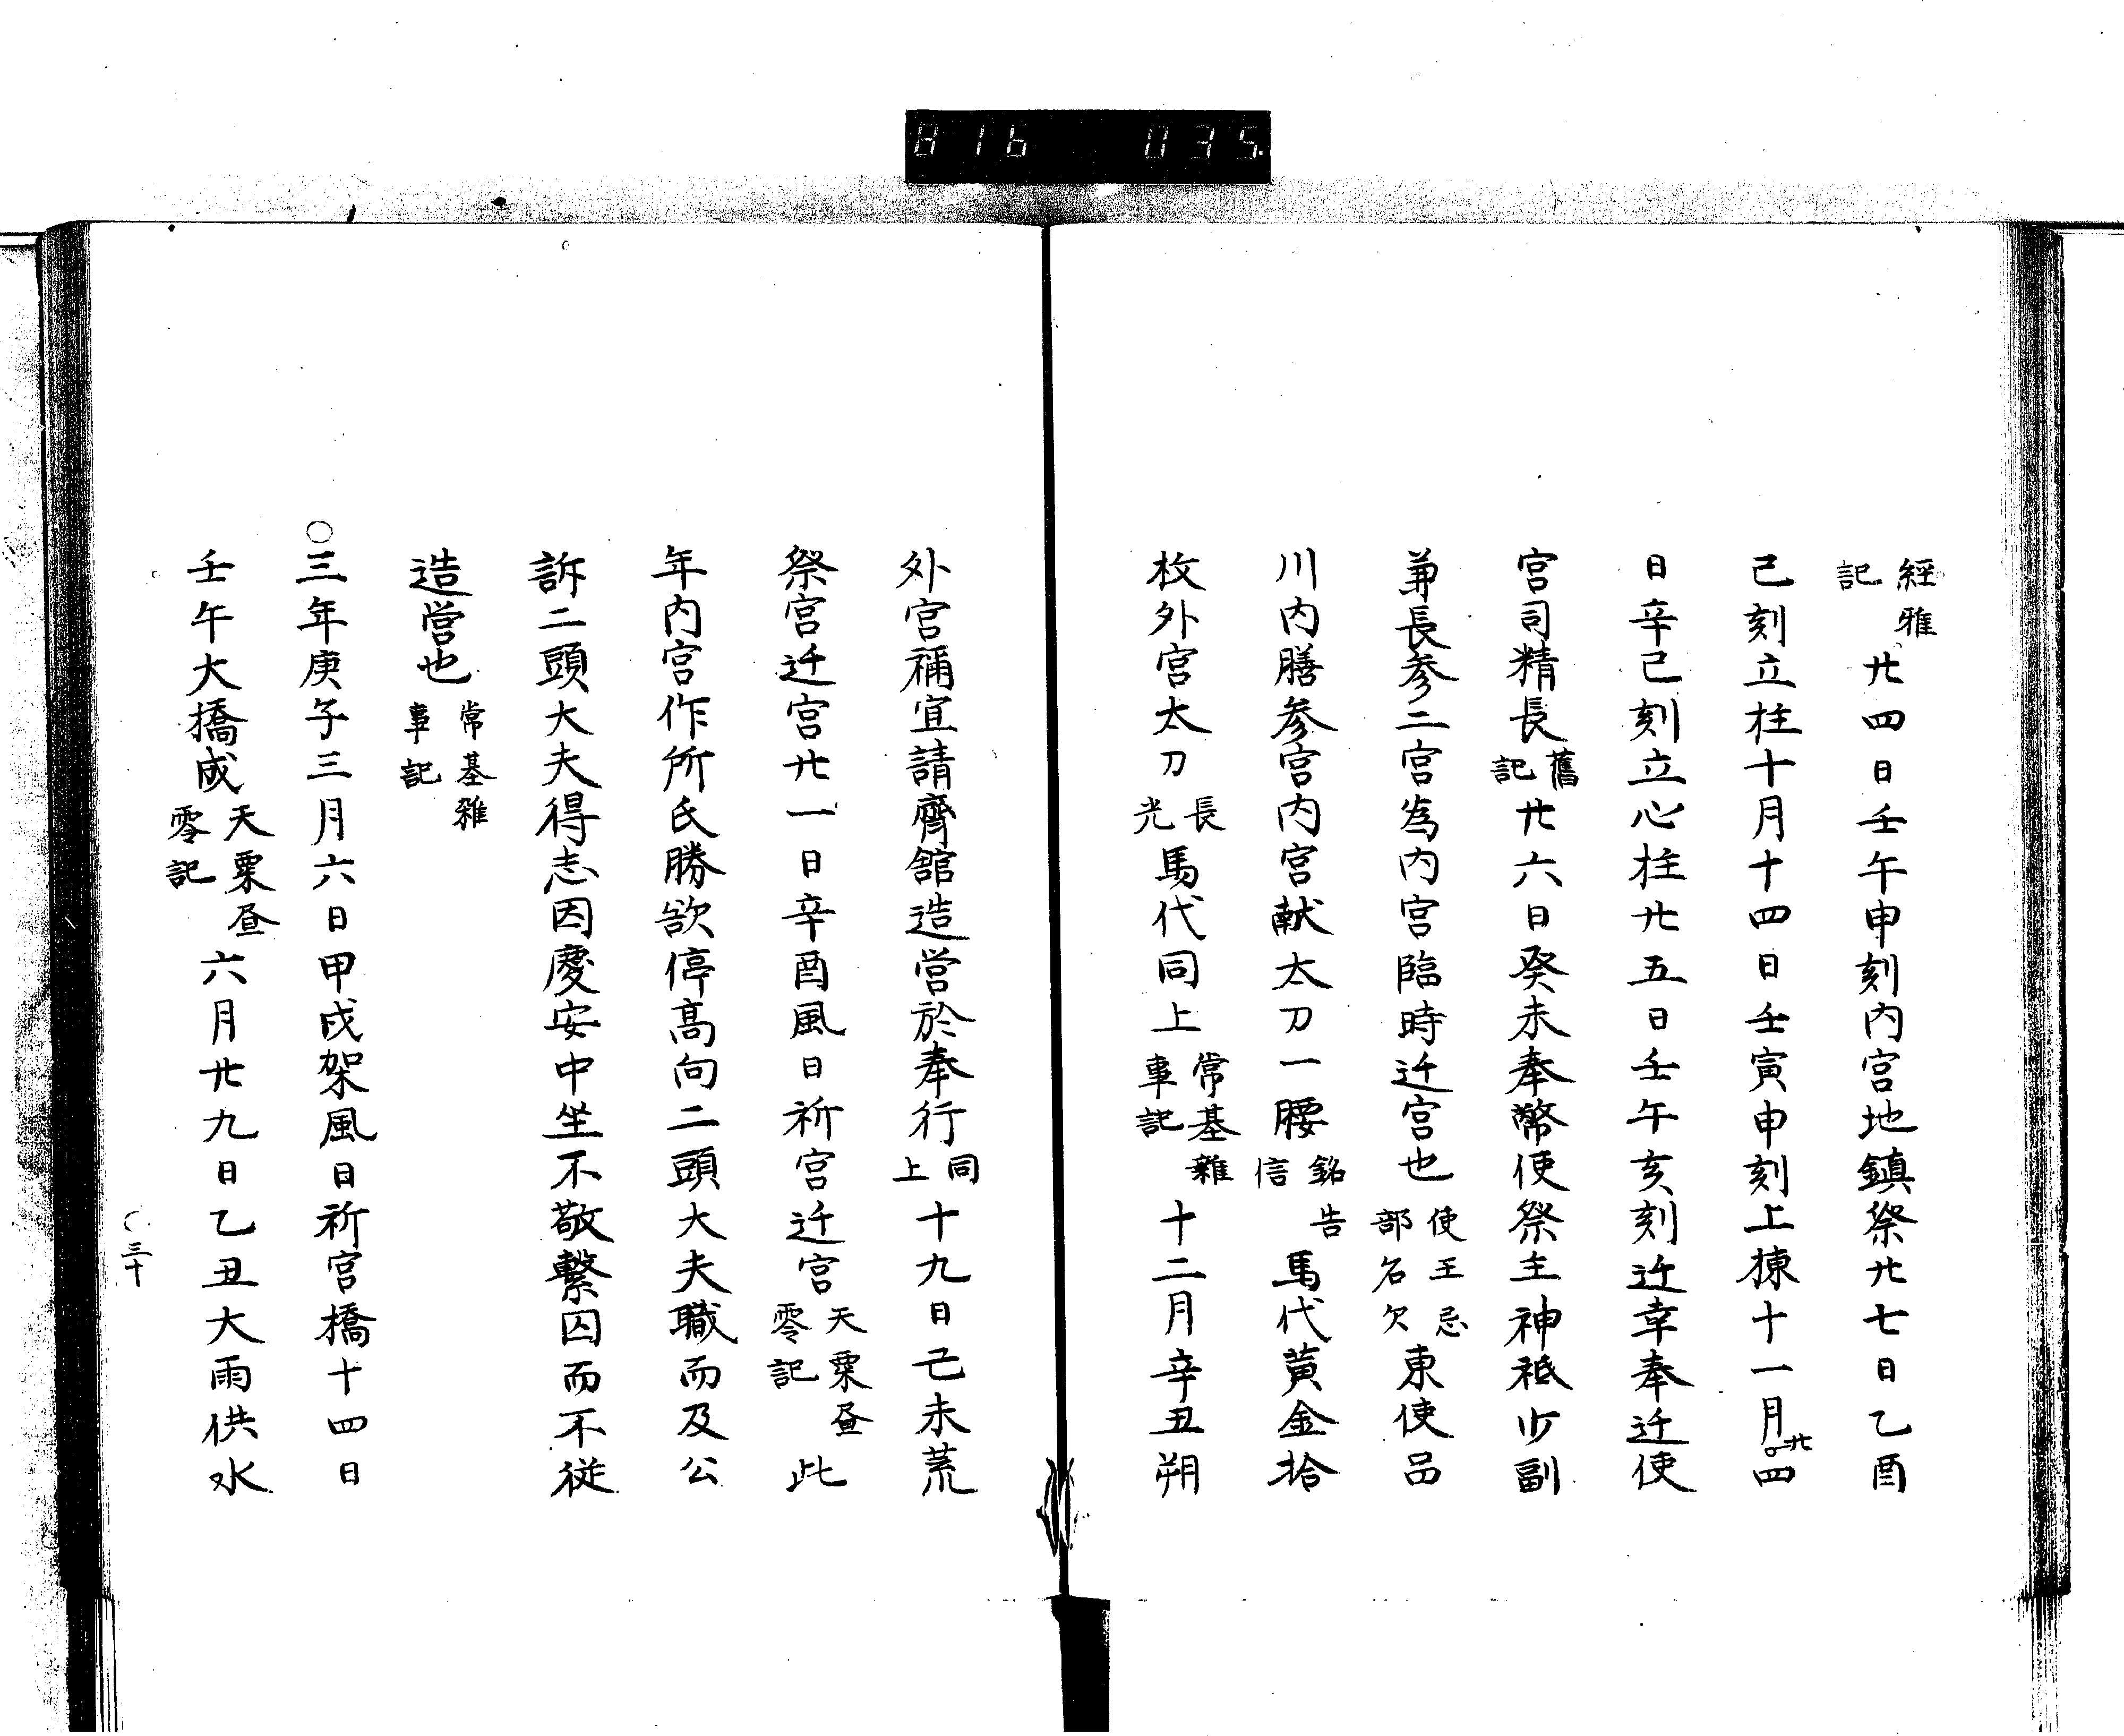 816 035
經雅記廿四日壬午申刻内宮地鎮祭廿七日乙酉
己刻立柱十月十四日壬寅申刻上棟十一月廿四
日辛己刻立心柱廿五日壬午亥刻迁幸奉迁使
宮司精長舊記廿六日癸未奉幣使祭主神祇少副
兼長参二宮為内宮臨時迁宮也使王忌部名欠東使品
川内膳参宮内宮献太刀一腰銘告信馬代黄金拾
枚外宮太刀長光馬代同上常基雜事記十二月辛丑朔
外宮禰宜請齊舘造営於奉行同上十九日己未荒
祭宮迁宮廿一日辛酉風日祈宮迁宮天粟昼零記此
年内宮作所氏勝欲停高向二頭大夫職而及公
訴二頭大夫得志因慶安中坐不敬繫囚而不從
造営也常基雜事記
○三年庚子三月六日甲戌架風日祈宮橋十四日
壬午大橋成天粟昼零記六月廿九日乙丑大雨供水
○三十